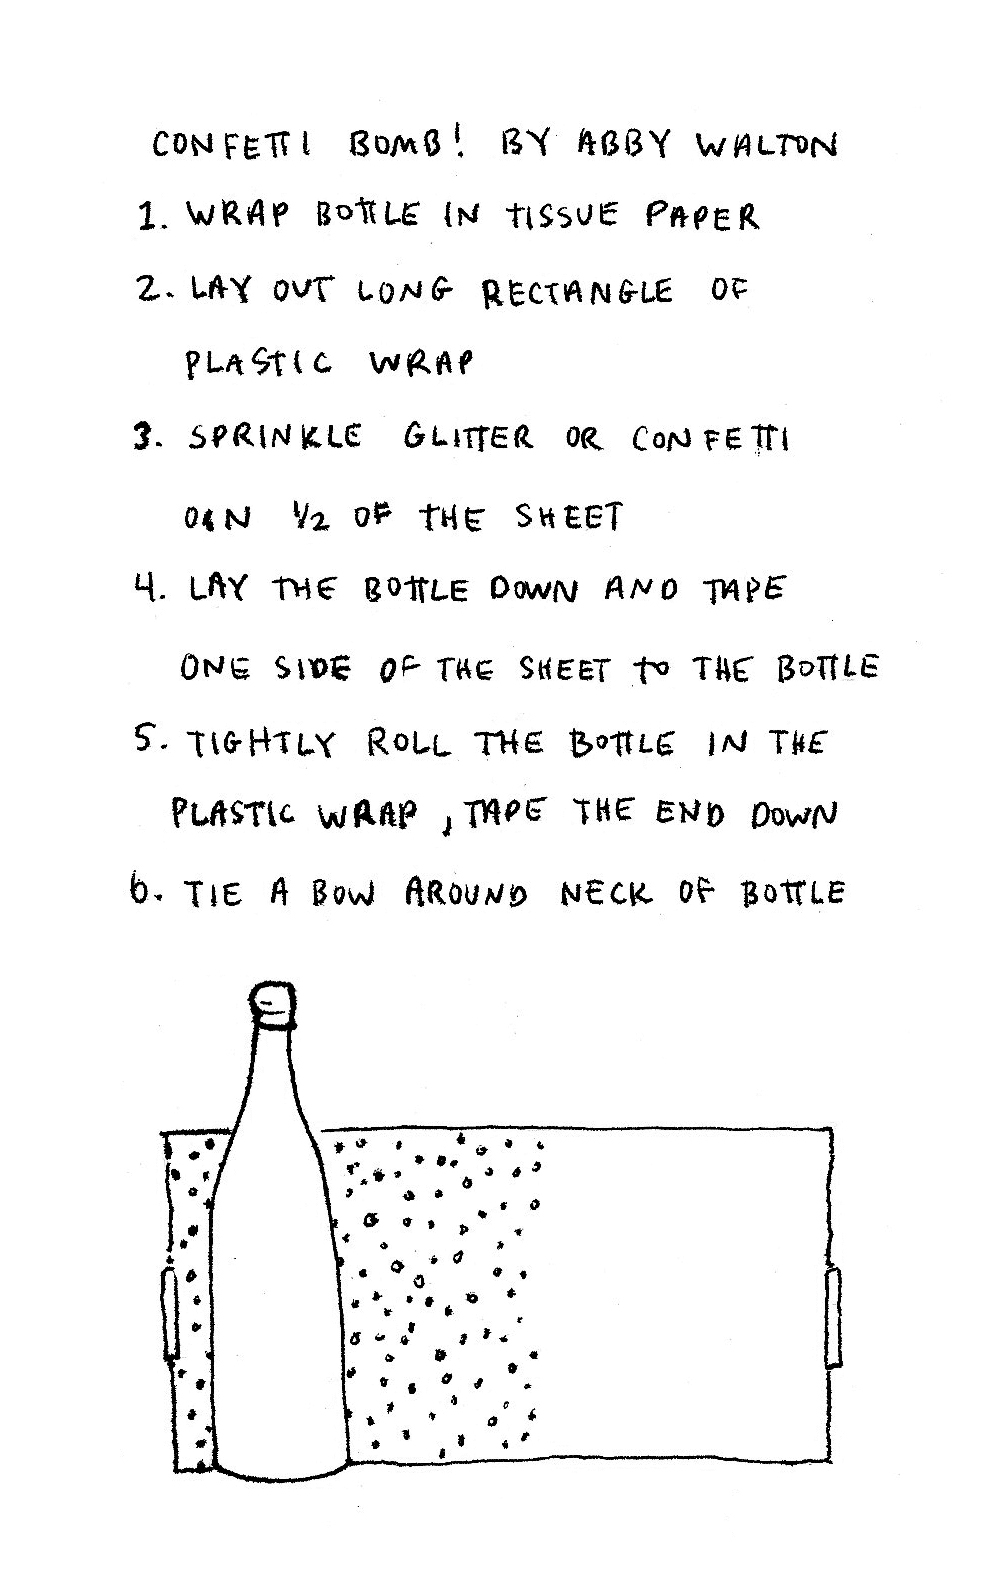 CONFETTI BOMB! BY ABBY WALTON
1. WRAP BOTTLE IN TISSUE PAPER
2. LAY OUT LONG RECTANGLE OF
PLASTIC WRAP
3. SPRINKLE GLITTER OR CONFETTI
ON 1/2 OF THE SHEET
4. LAY THE BOTTLE DOWN AND TAPE
ONE SIDE OF THE SHEET TO THE BOTTLE
5. TIGHTLY ROLL THE BOTTLE IN THE
PLASTIC WRAP, TAPE THE END DOWN
6. TIE A BOW AROUND NECK OF BOTTLE